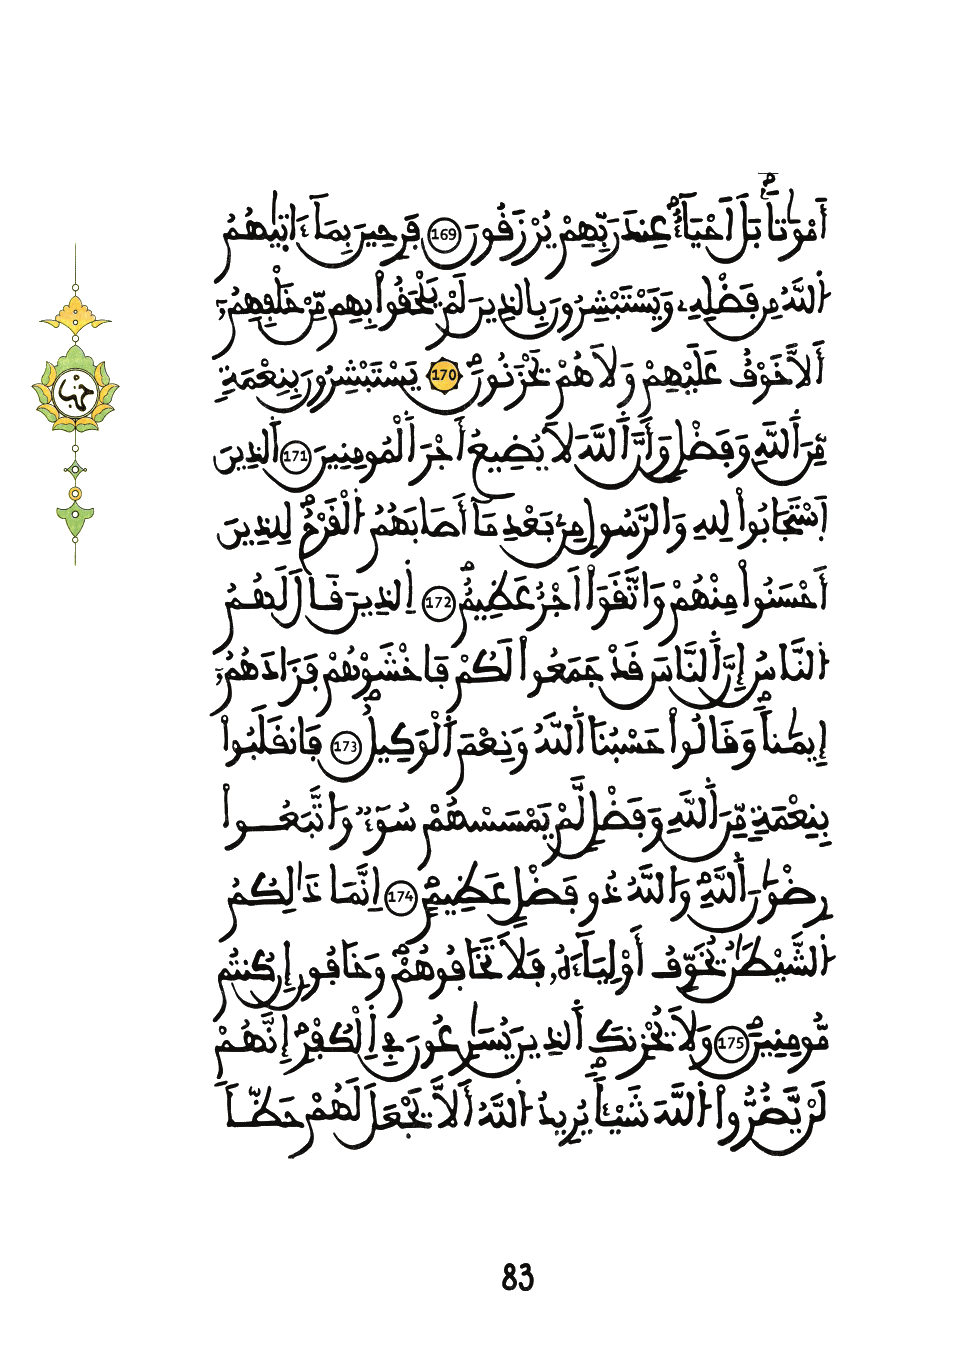 أَمْوَٰتاَۢ بَلَ اَحْيَآءٌ عِندَ رَبِّهِمْ يُرْزَقُونَ 169 فَرِحِينَ بِمَآ ءَاتٜيٰهُمُ
اُ۬للَّهُ مِن فَضْلِهِۦ وَيَسْتَبْشِرُونَ بِالذِينَ لَمْ يَلْحَقُواْ بِهِم مِّنْ خَلْفِهِمُۥٓ
أَلاَّ خَوْفٌ عَلَيْهِمْ وَلاَ هُمْ يَحْزَنُونَۖ 170 يَسْتَبْشِرُونَ بِنِعْمَةٍ
مِّنَ اَ۬للَّهِ وَفَضْلٍ وَأَنَّ اَ۬للَّهَ لاَ يُضِيعُ أَجْرَ اَ۬لْمُومِنِينَ 171 اَ۬لذِينَ
اَ۪سْتَجَابُواْ لِلهِ وَالرَّسُولِ مِنۢ بَعْدِ مَآ أَصَابَهُمُ اُ۬لْقَرْحُۖ لِلذِينَ
أَحْسَنُواْ مِنْهُمْ وَاتَّقَوَاْ اَجْرٌ عَظِيمٌۖ 172 اِ۬لذِينَ قَالَ لَهُمُ
اُ۬لنَّاسُ إِنَّ اَ۬لنَّاسَ قَدْ جَمَعُواْ لَكُمْ فَاخْشَوْهُمْ فَزَادَهُمُۥٓ
إِيمَٰناٗۖ وَقَالُواْ حَسْبُنَا اَ۬للَّهُ وَنِعْمَ اَ۬لْوَكِيلُۖ 173 فَانقَلَبُواْ
بِنِعْمَةٍ مِّنَ اَ۬للَّهِ وَفَضْلٍ لَّمْ يَمْسَسْهُمْ سُوٓءٌ وَاتَّبَعُواْ
رِضْوَٰنَ اَ۬للَّهِۖ وَاللَّهُ ذُو فَضْلٍ عَظِيمٍۖ 174 اِنَّمَا ذَٰلِكُمُ
اُ۬لشَّيْطَٰنُ يُخَوِّفُ أَوْلِيَآءَهُۥ فَلاَ تَخَافُوهُمْۖ وَخَافُونِ إِن كُنتُم
مُّومِنِينَۖ 175 وَلاَ يُحْزِنكَ اَ۬لذِينَ يُسَٰرِعُونَ فِے اِ۬لْكُفْرِۖ إِنَّهُمْ
لَنْ يَّضُرُّواْ اُ۬للَّهَ شَيْـٔاٗۖ يُرِيدُ اُ۬للَّهُ أَلاَّ يَجْعَلَ لَهُمْ حَظّاٗ
حزب
83